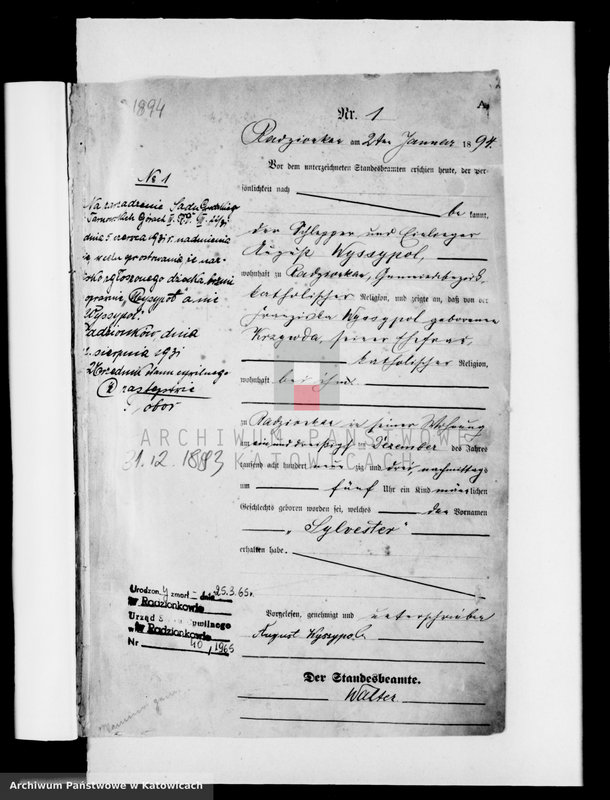 1894
A.
Nr. 1
Radzionkau am 2ten Januar 1894.
Vor dem unterzeichneten Standesbeamten erschien heute, der Per-
sönlichkeit nach
be kannt,
der Schlepper und Einlieger
August Wyssypol,
wohnhaft zu Radzionkau, Gemeindebezirk,
katholischer Religion, und zeigte an, daß von der
Franziska Wyssypol geborenen
Krzywda, seiner Ehefrau,
katholischer Religion,
wohnhaft bei ihm
zu Radzionkau in seiner Wohnung
am ein und dreißigsten Dezember des Jahres
tausend acht hundert neun zig und drei nachmittags
um fünf Uhr ein Kind männlichen
Geschlechts geboren worden sei, welches den Vornamen
„Sylvester"
erhalten habe.
Vorgelesen, genehmigt und unterschrieben
August Wyssypol
Der Standesbeamte.
Walter
No 1
Na zarządzenie Sądu Grodzkiego
Tarnowskich Górach
dnia 5 czerwca 1931 r. nadmienia
się, celem sprostowania że naz-
wisko zgłoszonego dziecka brzmi
poprawnie, Wysypoł a nie
"Wyssypol"
Radzionków, dnia
sierpnia 1931
Urzędnik stanu cywilnego
w zastępstwie
31.12.1893
Urodzony zmarł dnia 25.3.65r.
w Radzionkowie
Urząd Stanu Cywilnego
w Radzionkowie
Nr 40/1965
ARCHIWUM PAŃSTWOWE
W KATOWICACH
Archiwum Państwowe w Katowicach